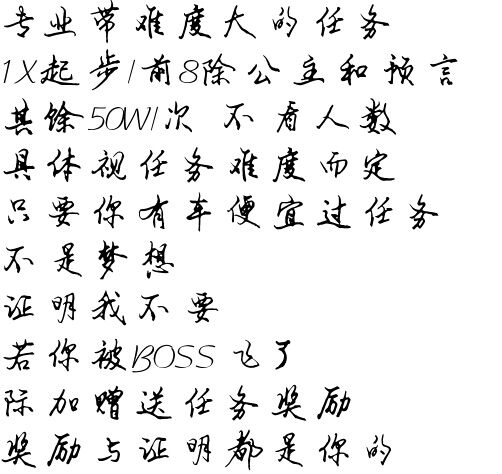 专业带难度大的任务
1X起步/前8除公主和预言
其馀50W/次 不看人数
具体视任务难度而定
只要你有车便宜过任务
不是梦想
证明我不要
若你被BOSS飞了
际加赠送任务奖励
奖励与证明都是你的